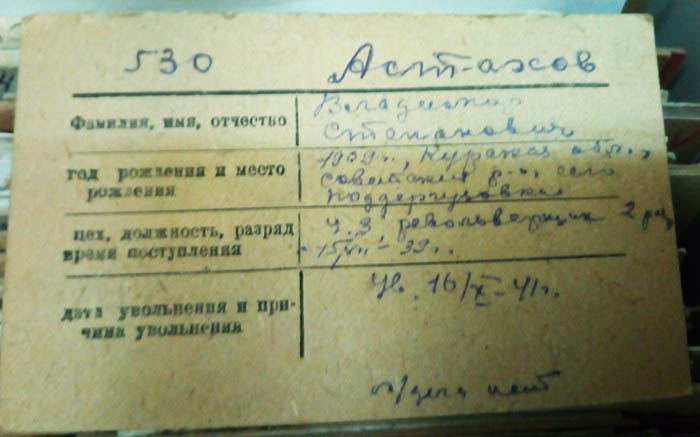 530 Астахов
Фамилия, имя, отчество
Владимир
Степанович
год рождения и место
рождения
1909г., Курская обл.,
Советский р-н, село
цех, должность, разряд
время поступления
ц. 3, револьверщик 2 раз
15/VII - 39г.
дата увольнения и при-
чина увольнения
Ув. 16/X - 41г.
л/дела нет